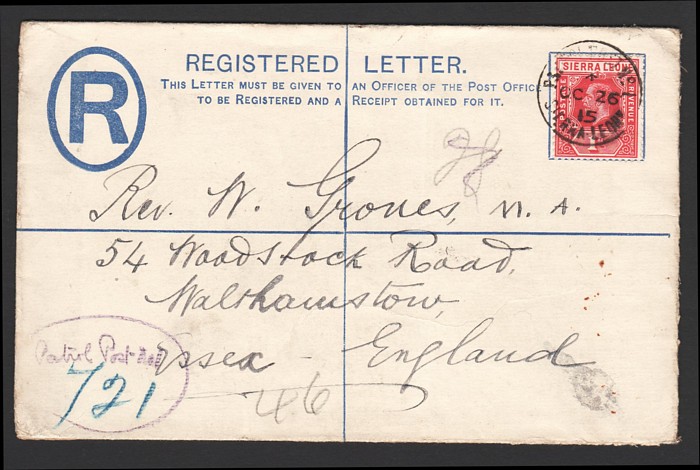 R
REGISTERED LETTER.
THIS LETTER MUST BE GIVEN TO AN OFFICER OF THE POST OFFICE
TO BE REGISTERED AND A RECEIPT OBTAINED FOR IT.
SIERRA LEONE
POSTAGE REVENUE
OC 26
15
SIERRA LEONE
Rev. W. Groves, M. A.
54 Woodstock Road,
Walthamstow,
Essex - England
Patrol Post
721
46